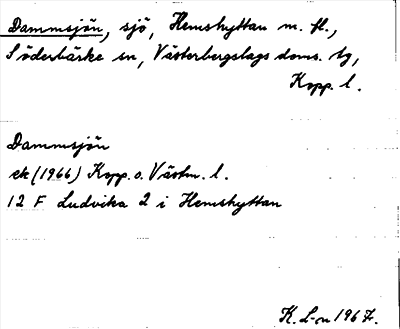 Dammsjön, sjö, Hemshyttan m. fl.,
Söderbärke sn, Västerbergslags doms. tg,
Kopp. l.
Dammsjön
ek (1966) Kopp. o. Västm. l.
12 F Ludvika 2 i Hemshyttan
K. L-n 1967.